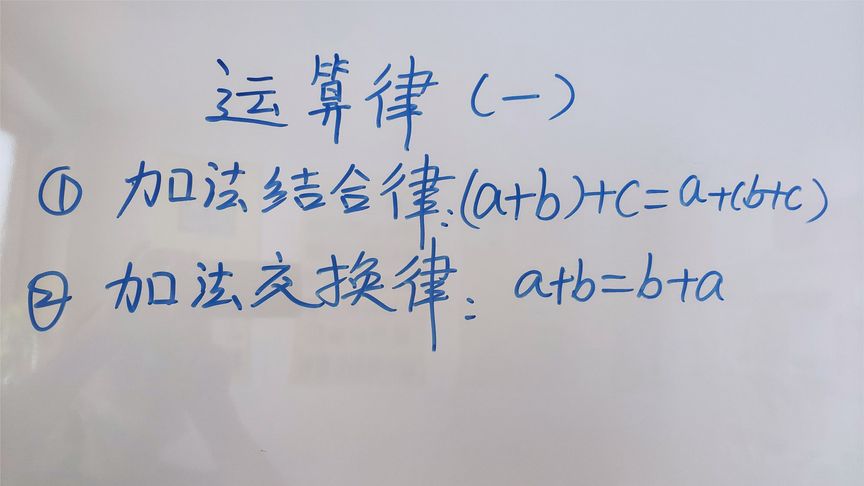 运算律(一)
① 加法结合律:(a+b)+c=a+(b+c)
② 加法交换律: a+b=b+a